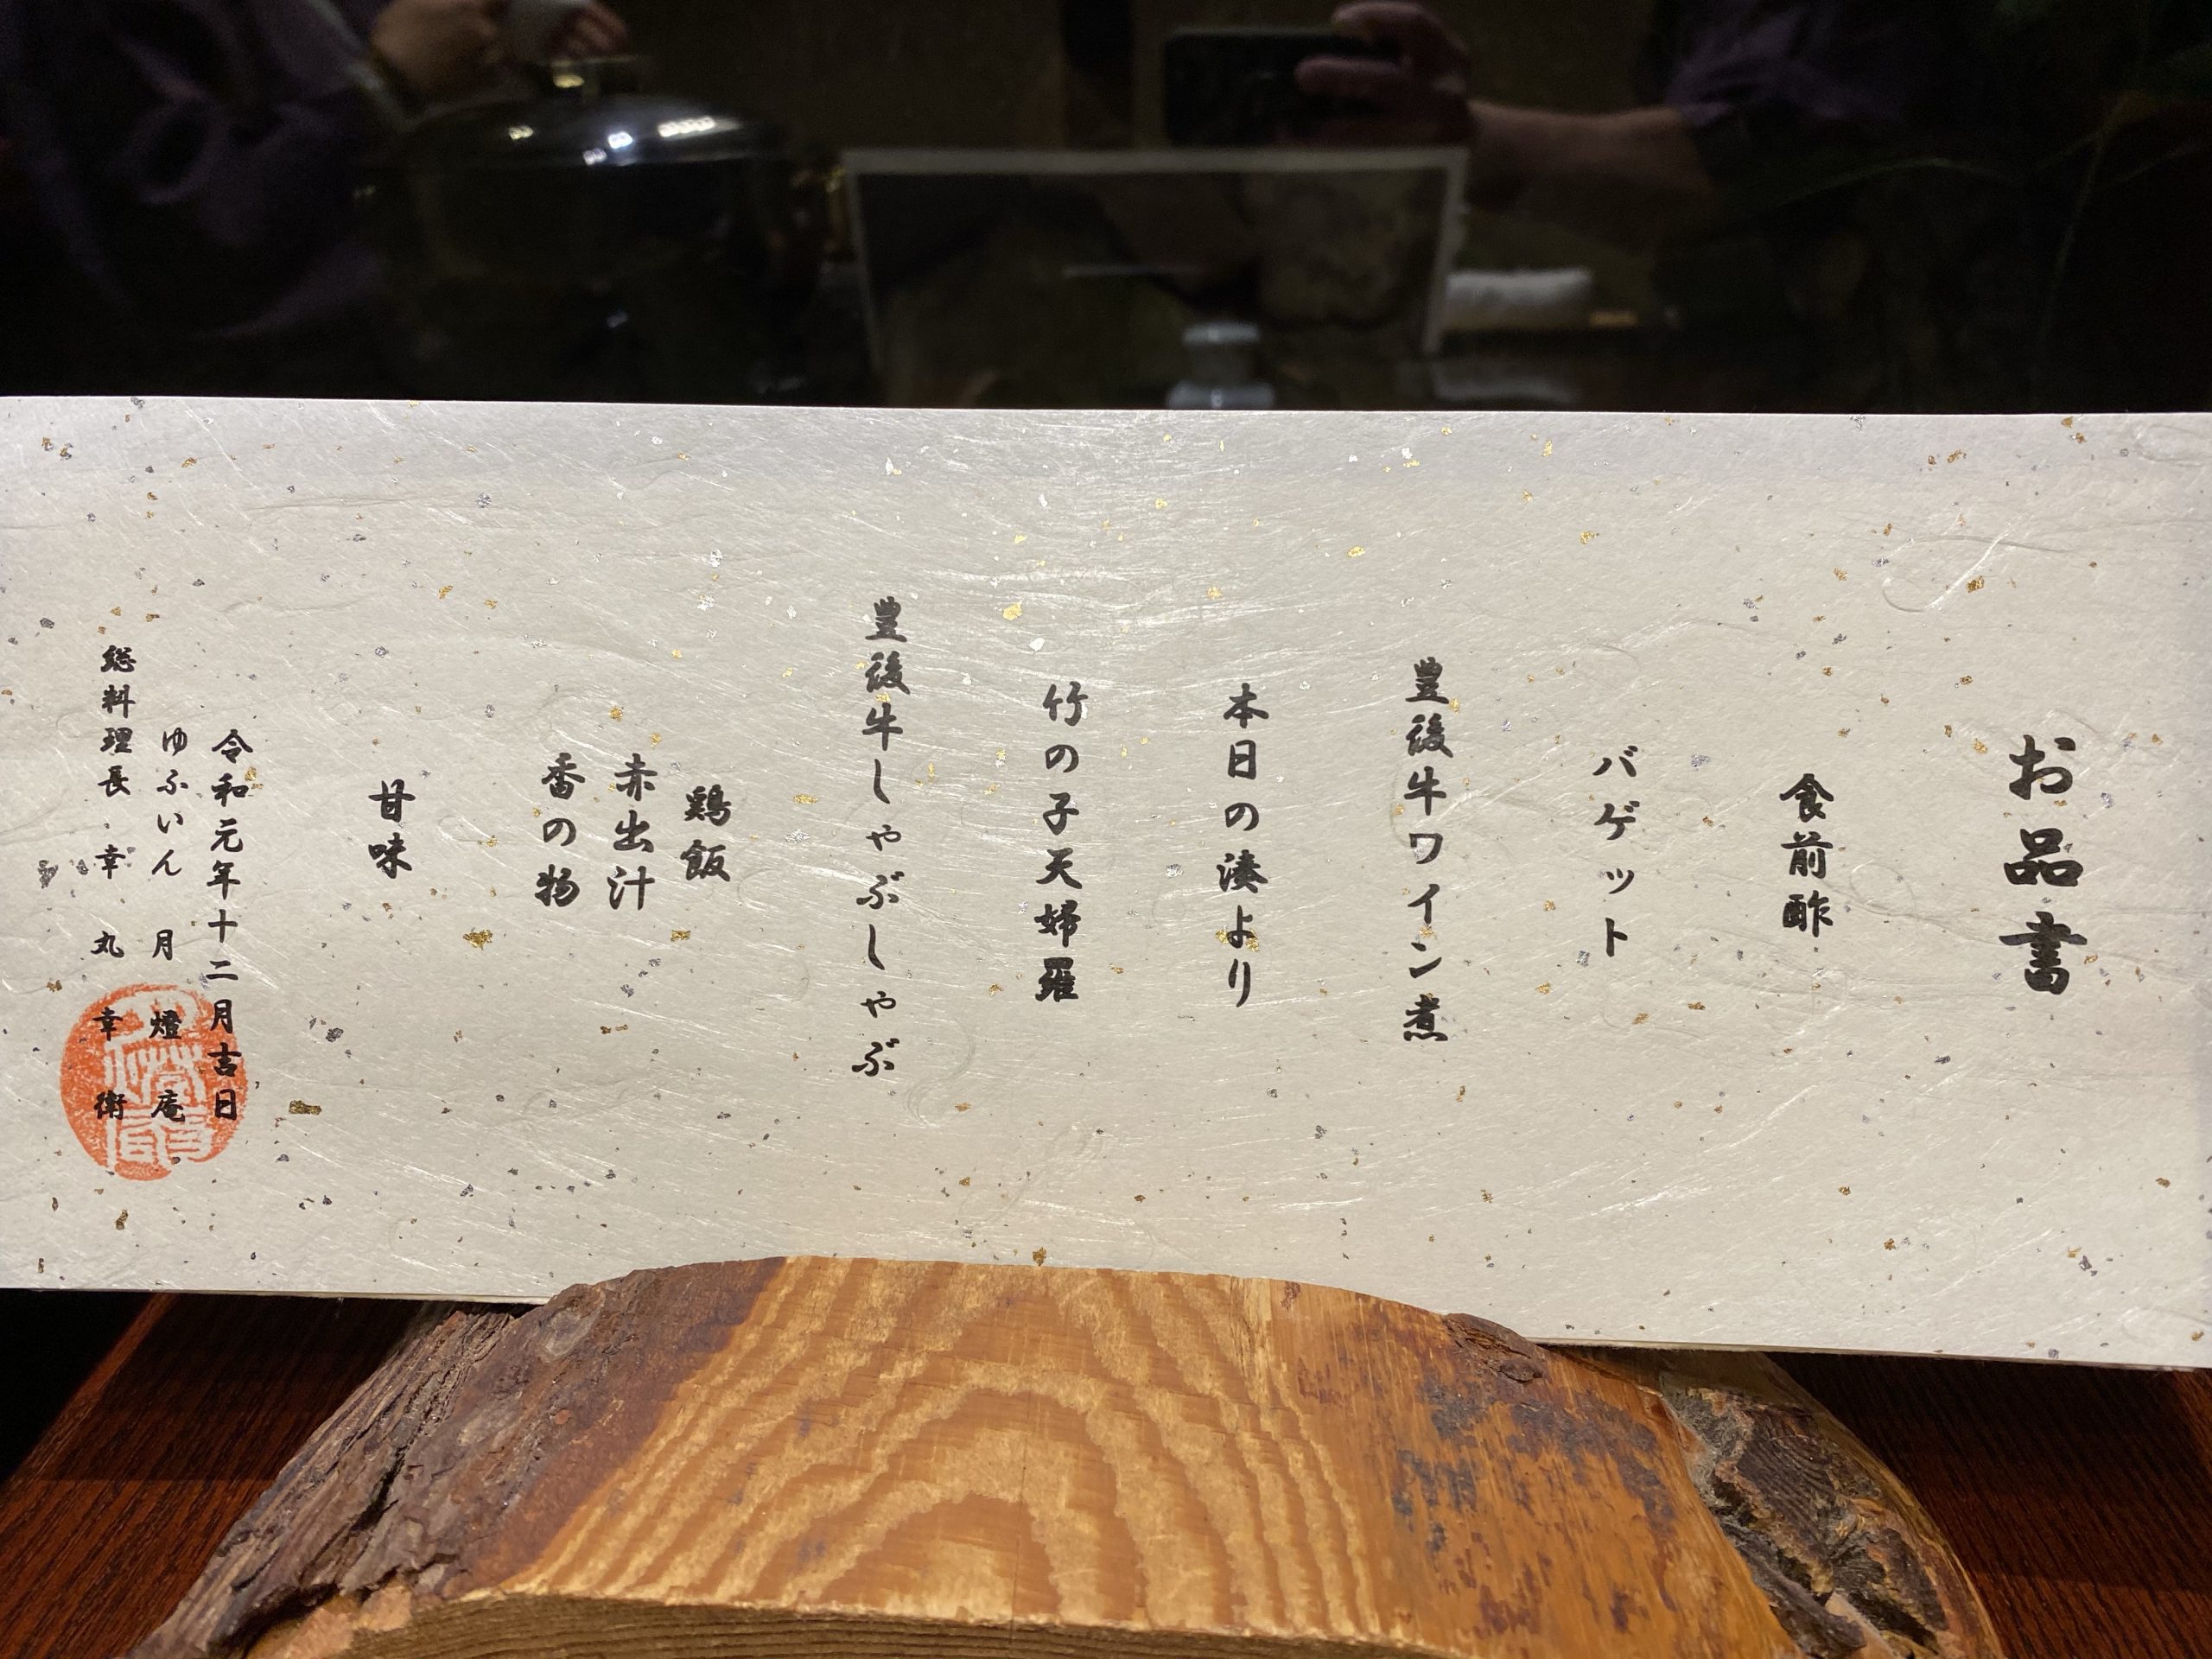 お品書
食前酢
バゲット
豊後牛ワイン煮
本日の湊より
竹の子天婦羅
豊後牛しゃぶしゃぶ
鶏飯
赤出汁
香の物
甘味
令和元年十二月吉日
ゆふいん 月燈庵
総料理長 幸丸幸衛